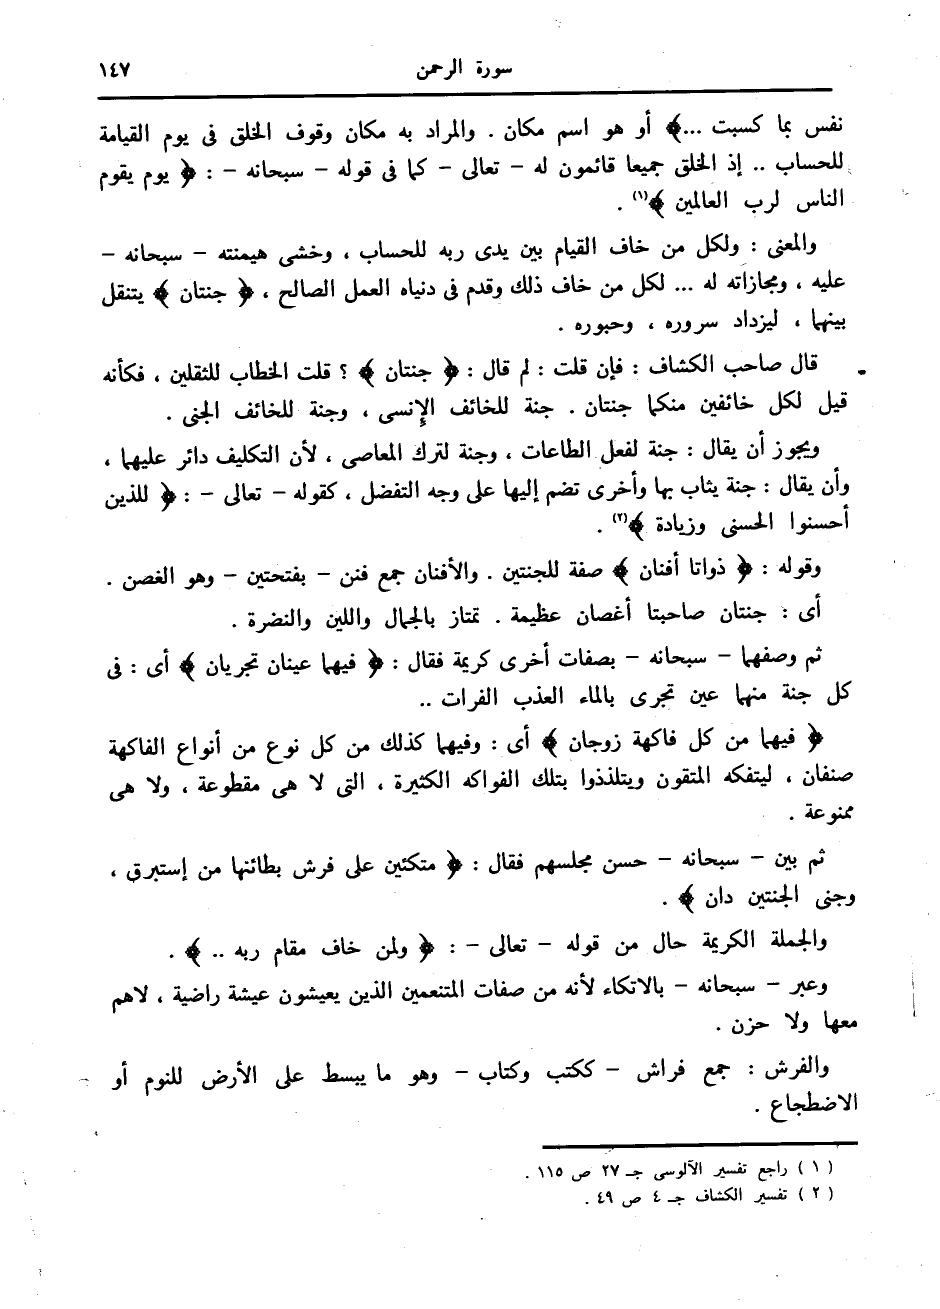 سورة الرحمن ١٤٧
نفس بما كسبت ...﴾ أو هو اسم مكان . والمراد به مكان وقوف الخلق فى يوم القيامة
للحساب .. إذ الخلق جميعا قائمون له – تعالى – كما فى قوله – سبحانه – : ﴿ يوم يقوم
الناس لرب العالمين ﴾(١) .
والمعنى : ولكل من خاف القيام بين يدى ربه للحساب ، وخشى هيمنته – سبحانه –
عليه ، ومجازاته له ... لكل من خاف ذلك وقدم فى دنياه العمل الصالح ، ﴿ جنتان ﴾ يتنقل
بينهما ، ليزداد سروره ، وحبوره .
قال صاحب الكشاف : فإن قلت : لم قال : ﴿ جنتان ﴾ ؟ قلت الخطاب للثقلين ، فكأنه
قيل لكل خائفين منكما جنتان . جنة للخائف الإنسى ، وجنة للخائف الجنى .
ويجوز أن يقال : جنة لفعل الطاعات ، وجنة لترك المعاصى ، لأن التكليف دائر عليهما ،
وأن يقال : جنة يثاب بها وأخرى تضم إليها على وجه التفضل ، كقوله – تعالى – : ﴿ للذين
أحسنوا الحسنى وزيادة ﴾(٢) .
وقوله : ﴿ ذواتا أفنان ﴾ صفة للجنتين . والأفنان جمع فنن – بفتحتين – وهو الغصن .
أى : جنتان صاحبتا أغصان عظيمة . تمتاز بالجمال واللين والنضرة .
ثم وصفهما – سبحانه – بصفات أخرى كريمة فقال : ﴿ فيهما عينان تجريان ﴾ أى : فى
كل جنة منهما عين تجرى بالماء العذب الفرات ..
﴿ فيهما من كل فاكهة زوجان ﴾ أى : وفيهما كذلك من كل نوع من أنواع الفاكهة
صنفان ، ليتفكه المتقون ويتلذذوا بتلك الفواكه الكثيرة ، التى لا هى مقطوعة ، ولا هى
ممنوعة .
ثم بين – سبحانه – حسن مجلسهم فقال : ﴿ متكئين على فرش بطائنها من إستبرق ،
وجنى الجنتين دان ﴾ .
والجملة الكريمة حال من قوله – تعالى – : ﴿ ولمن خاف مقام ربه .. ﴾ .
وعبر – سبحانه – بالاتكاء لأنه من صفات المتنعمين الذين يعيشون عيشة راضية ، لاهم
معها ولا حزن .
والفرش : جمع فراش – ككتب وكتاب – وهو ما يبسط على الأرض للنوم أو
الاضطجاع .
( ١ ) راجع تفسير الآلوسى جـ ٢٧ ص ١١٥ .
( ٢ ) تفسير الكشاف جـ ٤ ص ٤٩ .